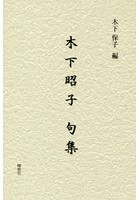 木下保子 編
木下昭子 句集